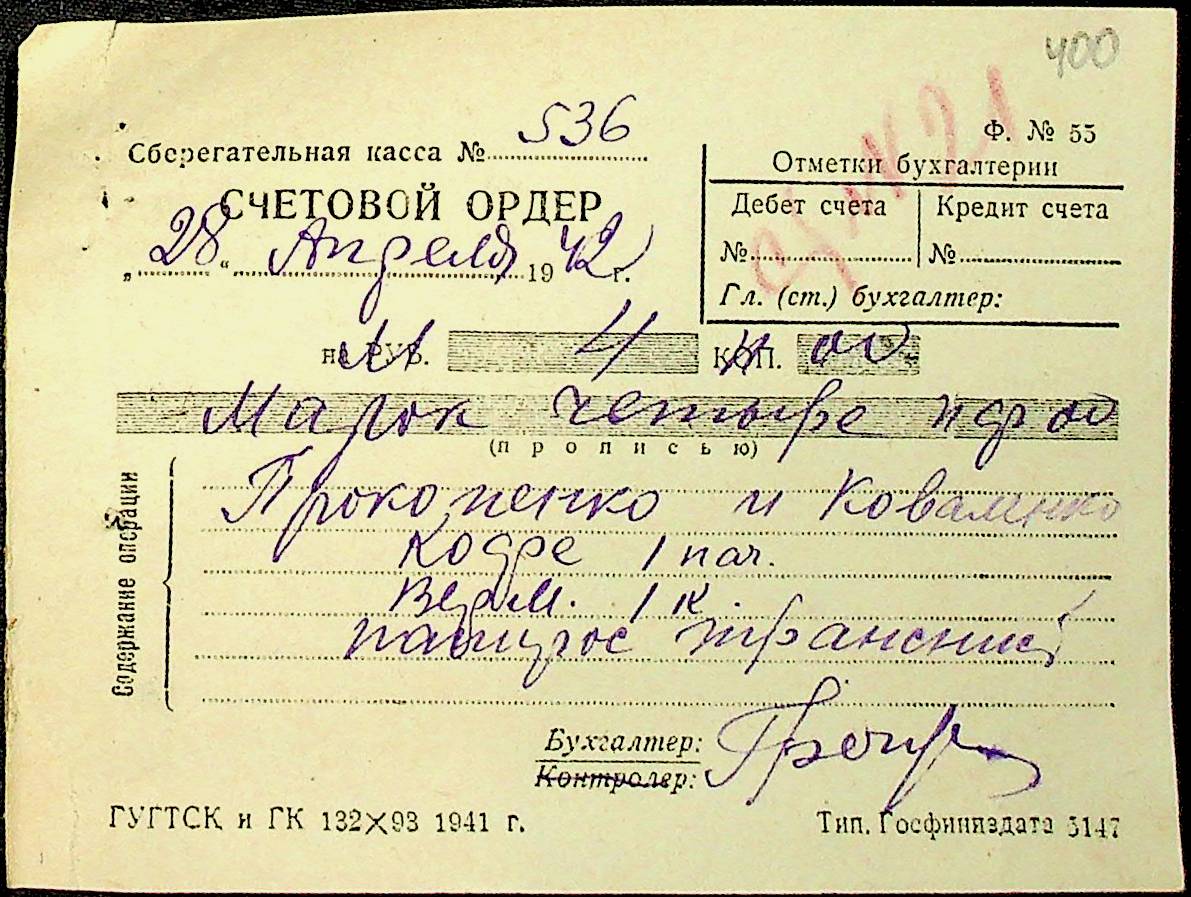 400
Ф. № 55
Сберегательная касса № 536
СЧЕТОВОЙ ОРДЕР
„28“ Апреля 1942 г.
Отметки бухгалтерии
Дебет счета Кредит счета
№ №
Гл. (ст.) бухгалтер:
на РУБ. 4 КОП. 00
Марок четыре пф 00
(прописью)
Содержание операции
Прокопенко и Коваленко
1 пач.
1 к.
Бухгалтер:
Контролер:
ГУГТСК и ГК 132×93 1941 г.
Тип. Госфиниздата 5147